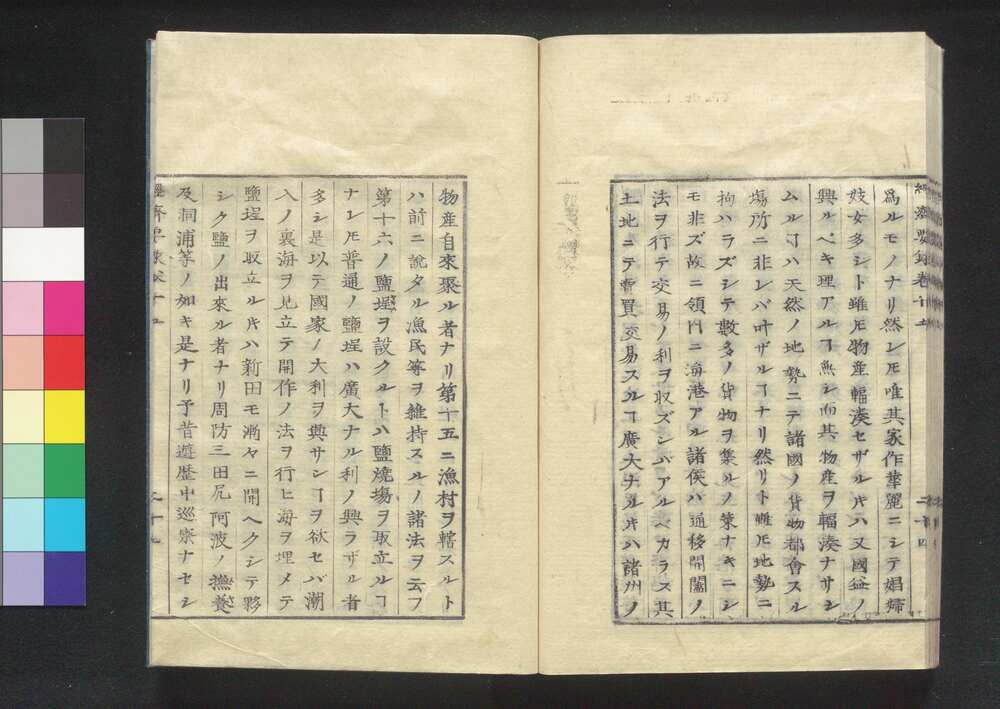 爲ルモノナリ然レ𪜈唯其家作華麗ニシテ娼婦
妓女多シト雖𪜈物産輻湊セザル片ハ又國益ノ
興ルベキ理アルヿ無シ而其物産ヲ輻湊ナサシ
ムルヿハ天然ノ地勢ニテ諸國ノ貨物都會スル
塲所ニ非レバ叶ザルヿナリ然リト雖𪜈地勢ニ
拘ハラズシテ數多ノ貨物ヲ集ルノ策ナキニシ
モ非ズ故ニ領内ニ海港アル諸侯ハ通移開闔ノ
法ヲ行テ交易ノ利ヲ収ズンバアルベカラズ其
土地ニテ賣買交易スルヿ廣大ナル片ハ諸州ノ
物産自來聚ル者ナリ第十五ニ漁村ヲ轄スルト
ハ前ニ説タル漁民等ヲ維持スルノ諸法ヲ云フ
第十六ノ鹽埕ヲ設クルトハ鹽燒塲ヲ取立ルヿ
ナレ𪜈普通ノ鹽埕ハ廣大ナル利ノ興ラザル者
多シ是以テ國家ノ大利ヲ興サンヿヲ欲セバ潮
入ノ裏海ヲ見立テ開作ノ法ヲ行ヒ海ヲ埋メテ
鹽埕ヲ取立ル片ハ新田モ漸々ニ開ヘクシテ夥
シク鹽ノ出來ル者ナリ周防三田尻阿波ノ撫養
及洞浦等ノ如キ是ナリ予昔遊歴中巡察ナセシ